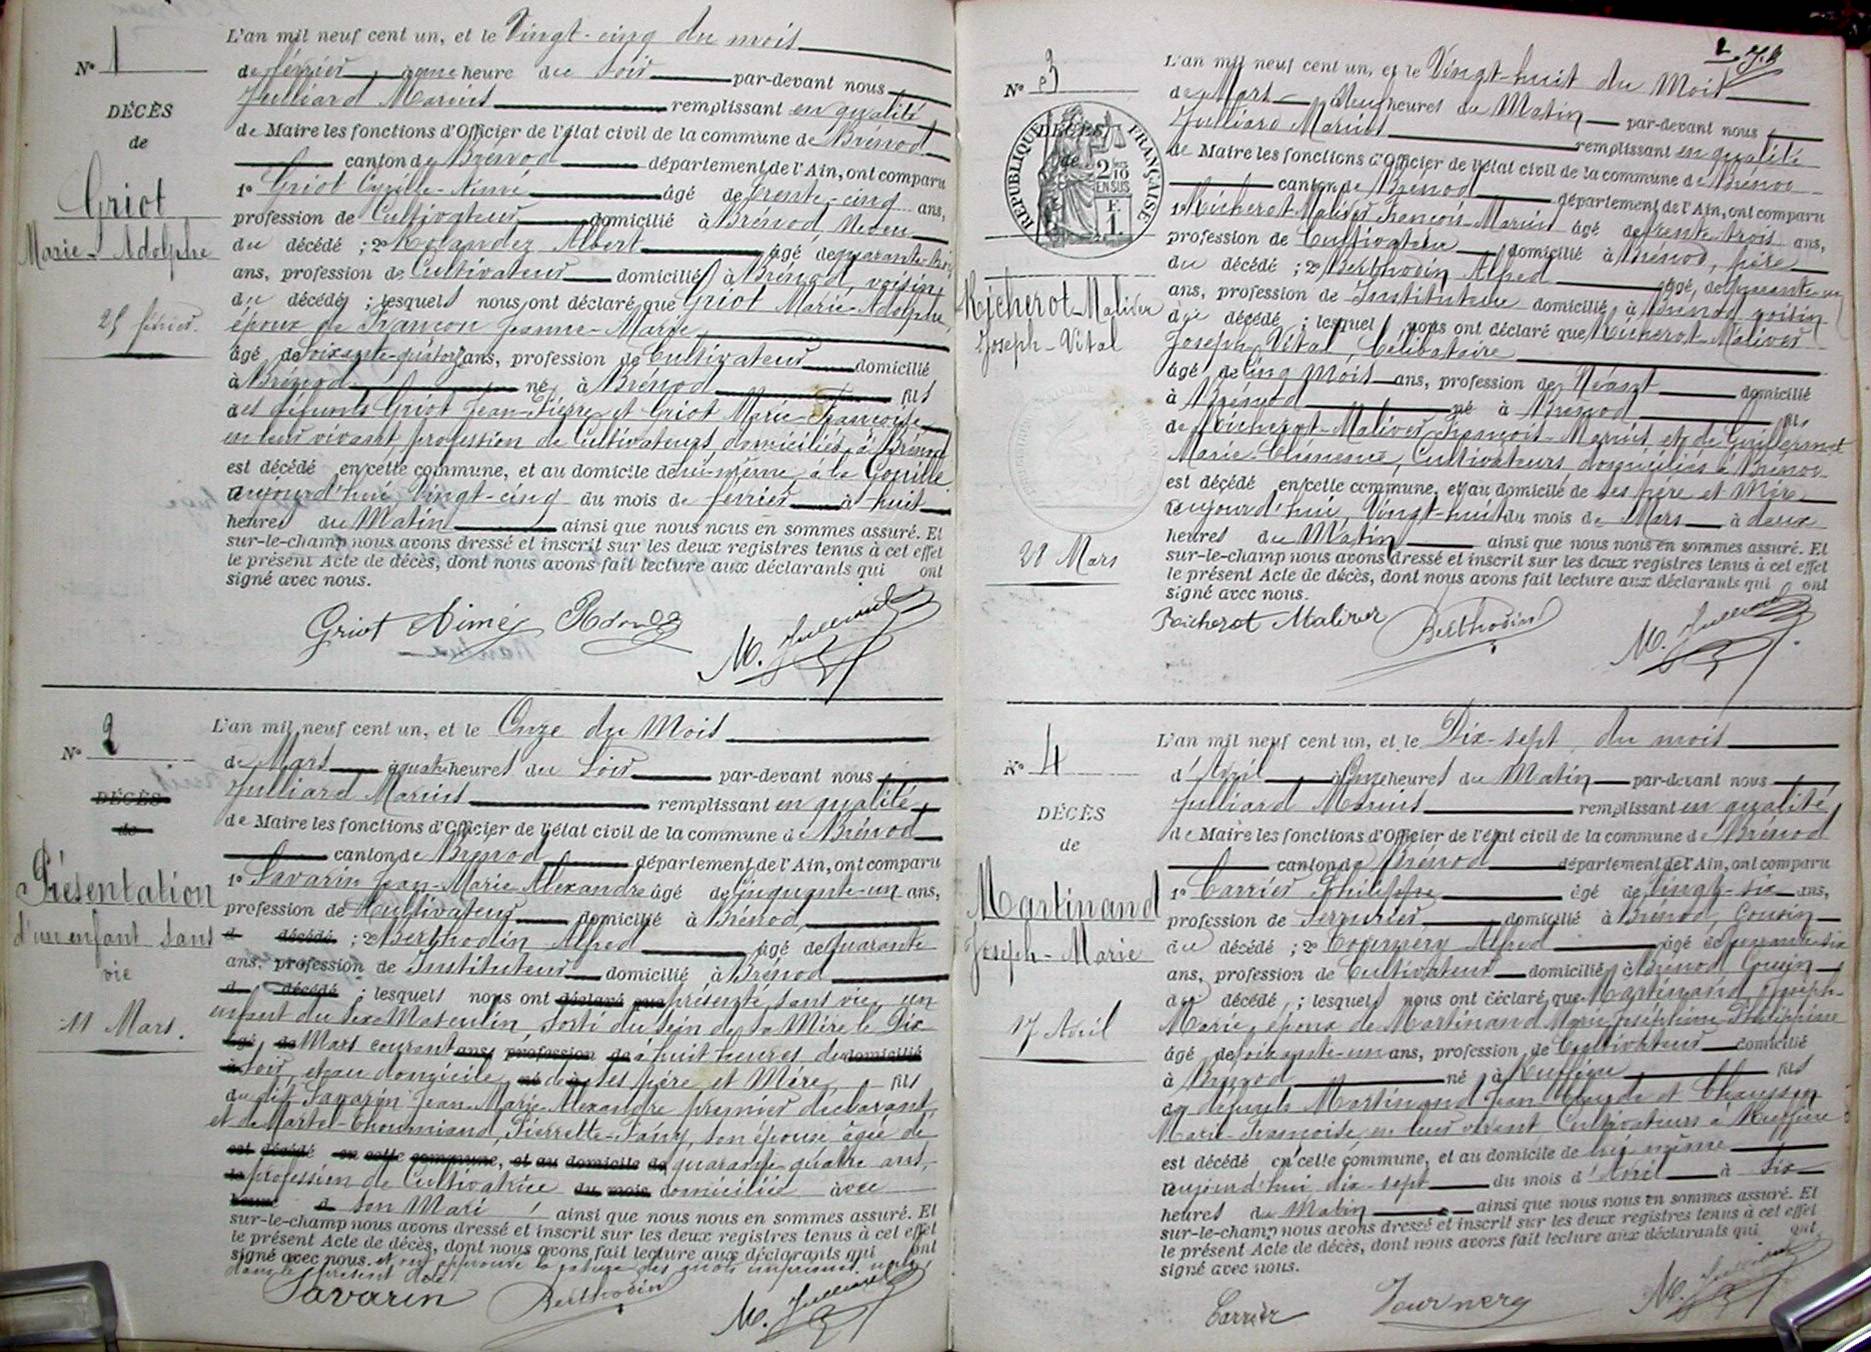 N° 1
DÉCÈS
de
Griot
Marie-Adolphe
25 février
L'an mil neuf cent un, et le Vingt-cinq du mois
de février à une heure du soir par-devant nous
Julliard Marius remplissant en qualité
de Maire les fonctions d'Officier de l'état civil de la commune de Brénod
canton de Brénod département de l'Ain, ont comparu
1° Griot Cyrille-Aimé âgé de trente-cinq ans,
profession de Cultivateur domicilié à Brénod, Neveu
du décédé ; 2° Rolandez Albert âgé de quarante-trois
ans, profession de Cultivateur domicilié à Brénod, voisin
du décédé ; lesquels nous ont déclaré que Griot Marie-Adolphe,
époux de Françon Jeanne-Marie
âgé de soixante-quatorze ans, profession de Cultivateur domicilié
à Brénod né à Brénod fils
des défunts Griot Jean-Pierre et Griot Marie-Françoise,
en leur vivant profession de Cultivateurs domiciliés à Brénod
est décédé en cette commune, et au domicile de lui-même, à la
aujourd'hui Vingt-cinq du mois de février à huit
heures du Matin ainsi que nous nous en sommes assuré. Et
sur-le-champ nous avons dressé et inscrit sur les deux registres tenus à cet effet
le présent Acte de décès, dont nous avons fait lecture aux déclarants qui ont
signé avec nous.
Griot Aimé M. Julliard
N° 2
DÉCÈS
de
Présentation
d'un enfant sans
vie
11 Mars.
L'an mil neuf cent un, et le Onze du Mois
de Mars à quatre heures du Soir par-devant nous
Julliard Marius remplissant en qualité
de Maire les fonctions d'Officier de l'état civil de la commune de Brénod
canton de Brénod département de l'Ain, ont comparu
1° Savarin Jean-Marie Alexandre âgé de cinquante-un ans,
profession de Cultivateur domicilié à Brénod,
d décédé ; 2° Berthodin Alfred âgé de quarante
ans, profession de Instituteur domicilié à Brénod
d décédé ; lesquels nous ont déclaré que présenté, sans vie, un
enfant du sexe Masculin, sorti du sein de sa Mère le Dix
âgé de Mars courant ans, profession de à huit heures du domicilié
à soir, et au domicile né de à ses père et Mère fils
du dit Savarin Jean-Marie Alexandre premier déclarant,
et de Martel-Thoumiand, Pierrette-Fany, son épouse âgée de
est décédé en cette commune, et au domicile de quarante-quatre ans,
profession de Cultivatrice du mois domiciliée avec
heure d son Mari ainsi que nous nous en sommes assuré. Et
sur-le-champ nous avons dressé et inscrit sur les deux registres tenus à cet effet
le présent Acte de décès, dont nous avons fait lecture aux déclarants qui ont
signé avec nous. et ont approuvé la rature des mots imprimés nuls
dans le présent acte
Savarin Berthodin M. Julliard
N° 3
RÉPUBLIQUE FRANÇAISE
DÉCÈS
de
2/10 EN SUS
F. 1.
Richerot-Maliver
Joseph-Vital
28 Mars
L'an mil neuf cent un, et le Vingt-huit du Mois
de Mars à Neuf heures du Matin par-devant nous
Julliard Marius remplissant en qualité
de Maire les fonctions d'Officier de l'état civil de la commune de Brénod
canton de Brénod département de l'Ain, ont comparu
1° Richerot-Maliver François-Marius âgé de trente-trois ans,
profession de Cultivateur domicilié à Brénod, père
du décédé ; 2° Berthodin Alfred âgé de quarante-un
ans, profession de Instituteur domicilié à Brénod voisin
du décédé ; lesquels nous ont déclaré que Richerot-Maliver
Joseph-Vital, Célibataire
âgé de cinq mois ans, profession de Néant domicilié
à Brénod né à Brénod fils
de Richerot-Maliver François-Marius et de Guillermet
Marie-Clémence, Cultivateurs domiciliés à Brénod
est décédé en cette commune, et au domicile de ses père et Mère
aujourd'hui Vingt-huit du mois de Mars à deux
heures du Matin ainsi que nous nous en sommes assuré. Et
sur-le-champ nous avons dressé et inscrit sur les deux registres tenus à cet effet
le présent Acte de décès, dont nous avons fait lecture aux déclarants qui ont
signé avec nous.
Richerot Maliver Berthodin M. Julliard
N° 4
DÉCÈS
de
Martinand
Joseph-Marie
17 Avril
L'an mil neuf cent un, et le Dix-sept du mois
d'Avril à Onze heures du Matin par-devant nous
Julliard Marius remplissant en qualité
de Maire les fonctions d'Officier de l'état civil de la commune de Brénod
canton de Brénod département de l'Ain, ont comparu
1° Carrier Philippe âgé de Vingt-six ans,
profession de Serrurier domicilié à Brénod, Cousin
du décédé ; 2° Tournery Alfred âgé de quarante-six
ans, profession de Cultivateur domicilié à Brénod Cousin
du décédé ; lesquels nous ont déclaré que Martinand Joseph-
Marie, époux de Martinand Marie Joséphine Philippine
âgé de soixante-un ans, profession de Cultivateur domicilié
à Brénod né à Ruffieu fils
des défunts Martinand Jean-Claude et Chausson
Marie-Françoise, en leur vivant Cultivateurs à Ruffieu
est décédé en cette commune, et au domicile de lui-même
aujourd'hui dix-sept du mois d'Avril à six
heures du Matin ainsi que nous nous en sommes assuré. Et
sur-le-champ nous avons dressé et inscrit sur les deux registres tenus à cet effet
le présent Acte de décès, dont nous avons fait lecture aux déclarants qui ont
signé avec nous.
Carrier Tournery M. Julliard